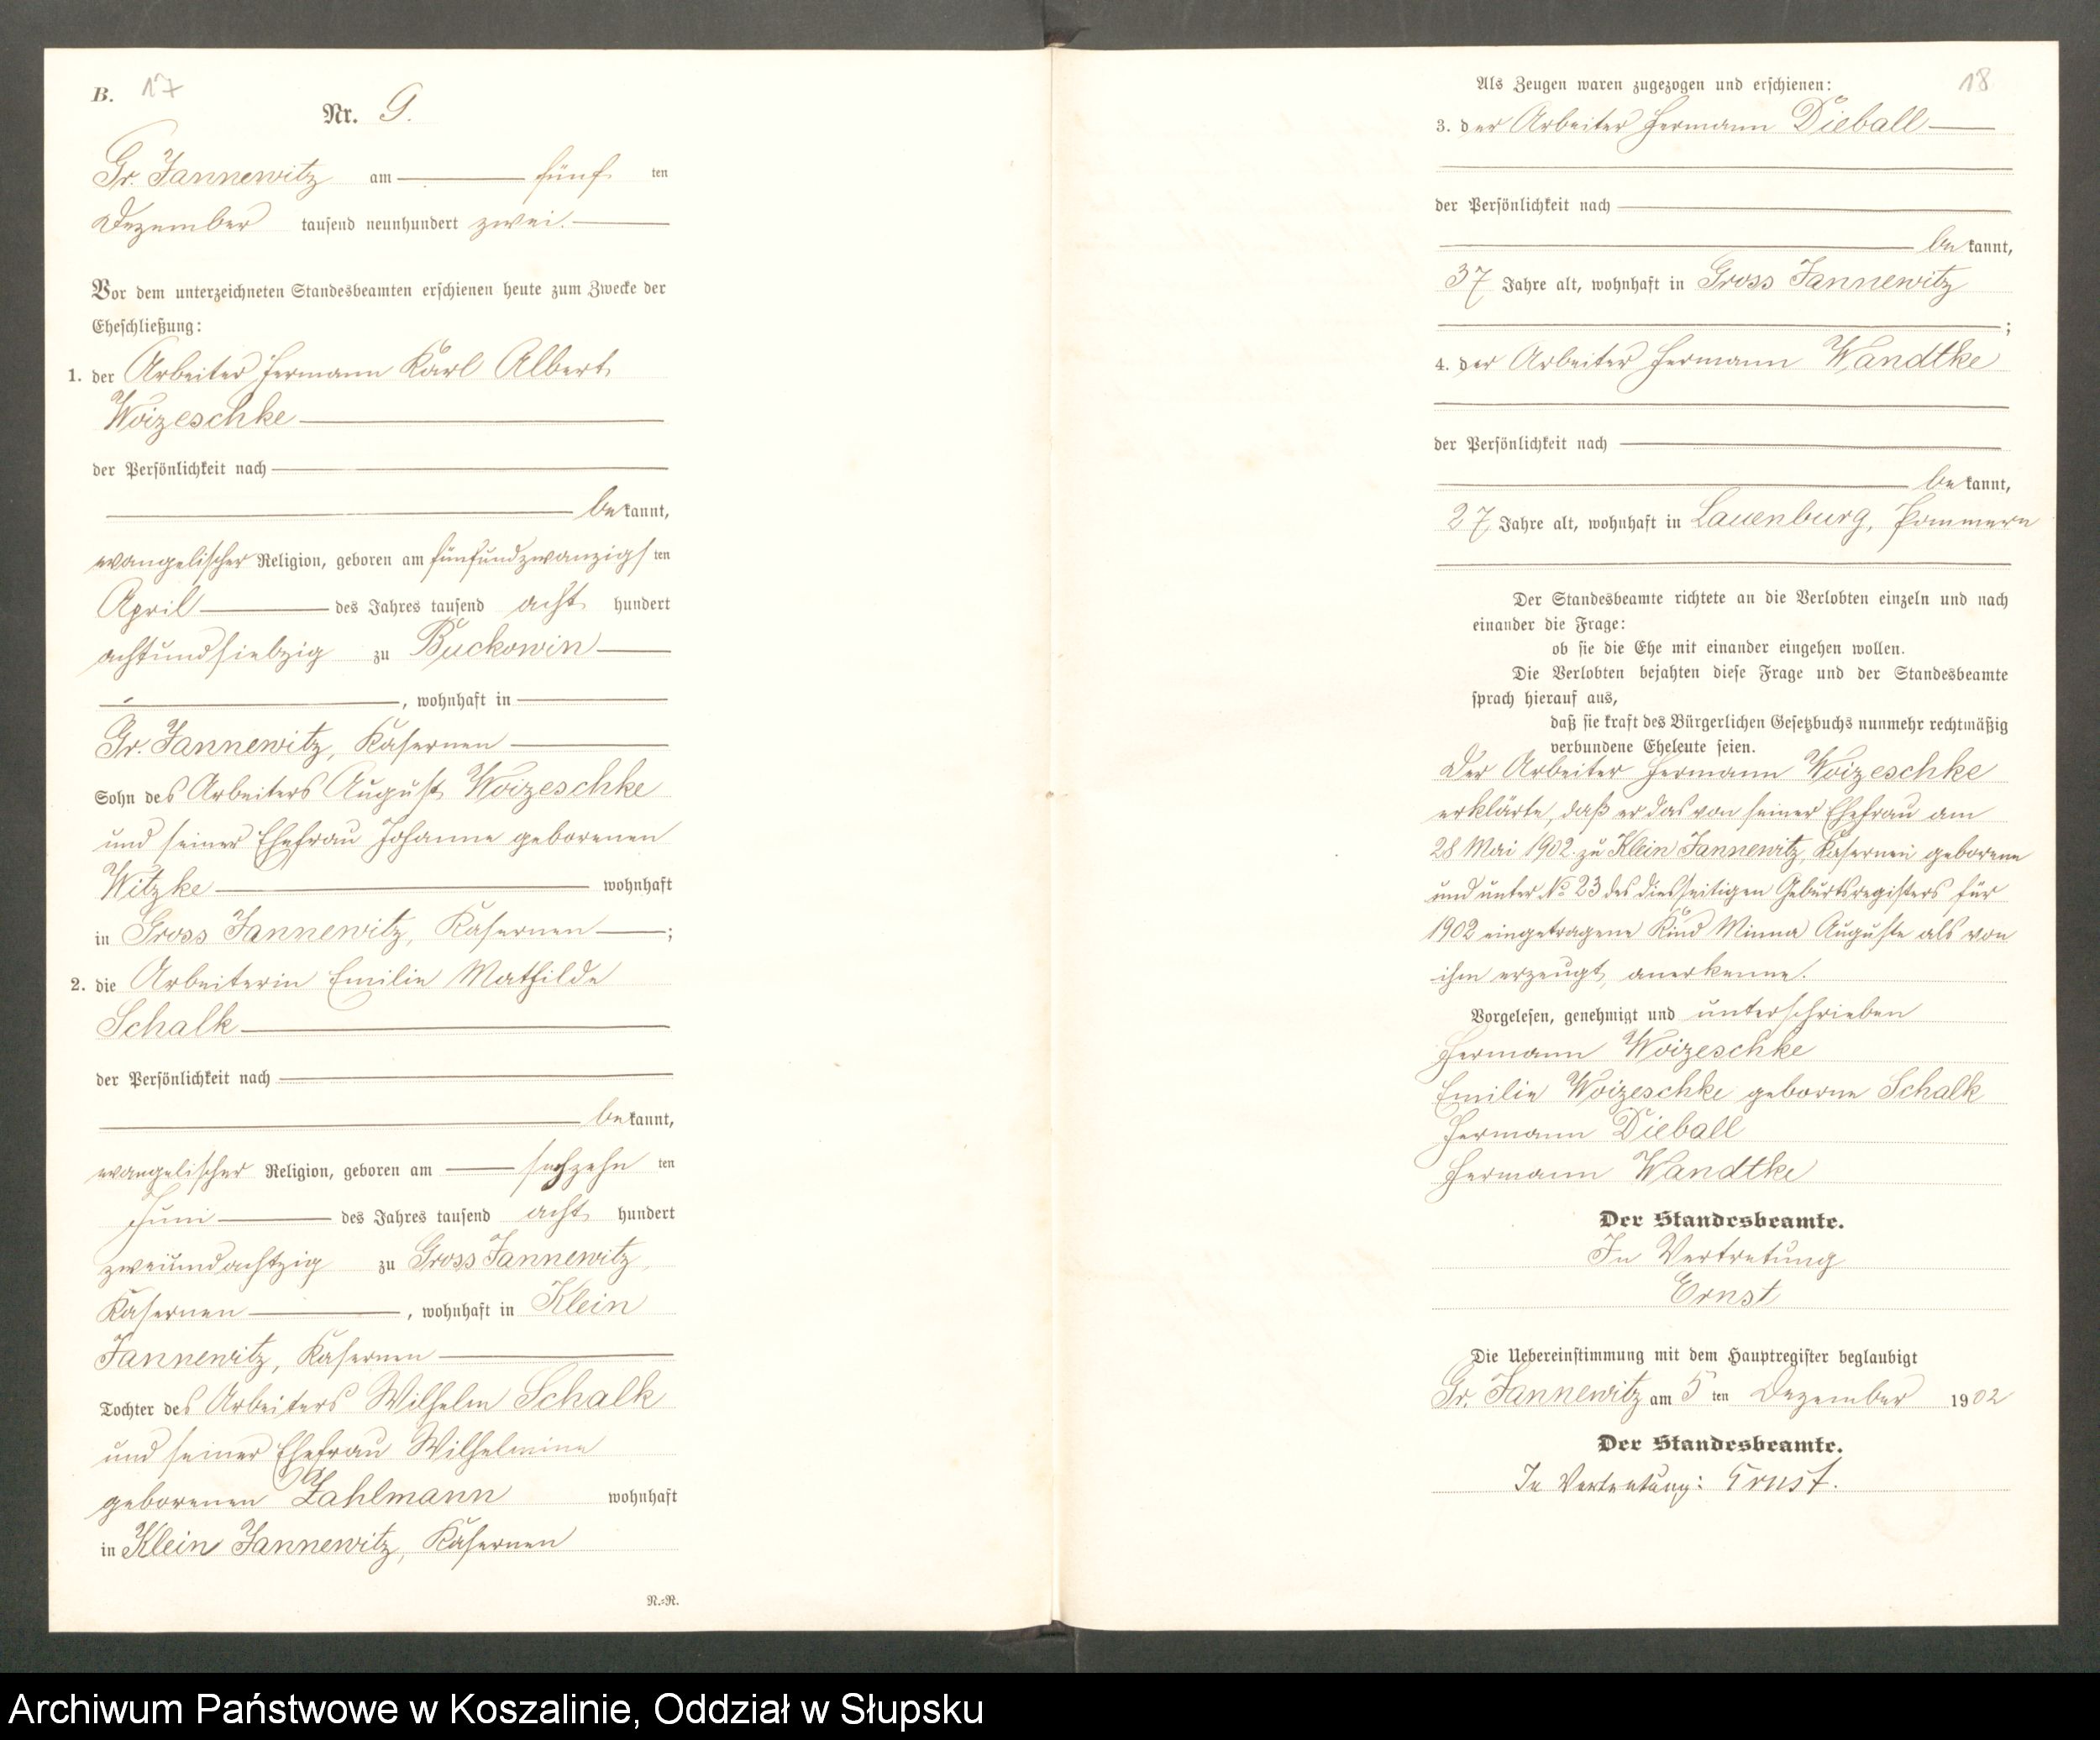 B. 17
Nr. 9.
Gr. Jannewitz am fünf ten
Dezember tausend neunhundert zwei.
Vor dem unterzeichneten Standesbeamten erschienen heute zum Zwecke der
Eheschließung:
1. der Arbeiter Hermann Karl Albert
Woizeschke
der Persönlichkeit nach
be kannt,
evangelischer Religion, geboren am fünfundzwanzigs ten
April des Jahres tausend acht hundert
achtundsiebzig zu Buckowin
, wohnhaft in
Gr. Jannewitz, Kasernen
Sohn des Arbeiters August Woizeschke
und seiner Ehefrau Johanne geborenen
Witzke wohnhaft
in Gross Jannewitz, Kasernen ;
2. die Arbeiterin Emilie Mathilde
Schalk
der Persönlichkeit nach
be kannt,
evangelischer Religion, geboren am sechzehn ten
Juni des Jahres tausend acht hundert
zweiundachtzig zu Gross Jannewitz,
Kasernen , wohnhaft in Klein
Jannewitz, Kasernen
Tochter des Arbeiters Wilhelm Schalk
und seiner Ehefrau Wilhelmine
geborenen Zahlmann wohnhaft
in Klein Jannewitz, Kasernen
N.=N.
18
Als Zeugen waren zugezogen und erschienen:
3. der Arbeiter Hermann Dieball
der Persönlichkeit nach
be kannt,
37 Jahre alt, wohnhaft in Gross Jannewitz
;
4. der Arbeiter Hermann Wandtke
der Persönlichkeit nach
be kannt,
27 Jahre alt, wohnhaft in Lauenburg, Pommern
Der Standesbeamte richtete an die Verlobten einzeln und nach
einander die Frage:
ob sie die Ehe mit einander eingehen wollen.
Die Verlobten bejahten diese Frage und der Standesbeamte
sprach hierauf aus,
daß sie kraft des Bürgerlichen Gesetzbuchs nunmehr rechtmäßig
verbundene Eheleute seien.
Der Arbeiter Hermann Woizeschke
erklärte, daß er das von seiner Ehefrau am
28 Mai 1902 zu Klein Jannewitz, Kasernen geborene
und unter No 23 des diesseitigen Geburtsregisters für
1902 eingetragene Kind Minna Auguste als von
ihm erzeugt, anerkenne.
Vorgelesen, genehmigt und unterschrieben
Hermann Woizeschke
Emilie Woizeschke geborne Schalk
Hermann Dieball
Hermann Wandtke
Der Standesbeamte.
In Vertretung
Ernst
Die Uebereinstimmung mit dem Hauptregister beglaubigt
Gr. Jannewitz am 5 ten Dezember 1902
Der Standesbeamte.
In Vertretung: Ernst.
Archiwum Państwowe w Koszalinie, Oddział w Słupsku